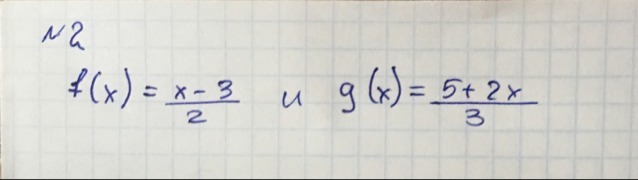 №2
f(x) = x - 3 / 2 и g(x) = 5 + 2x / 3